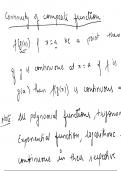 Continuity of composite function
f{g(x)} If x=a be a point then
If g is continuous at x=a & f is
g(a) then f{g(x)} is continuous a
Note All polynomial functions, trigonom
Exponential function, logarithmic
continuous in their respective